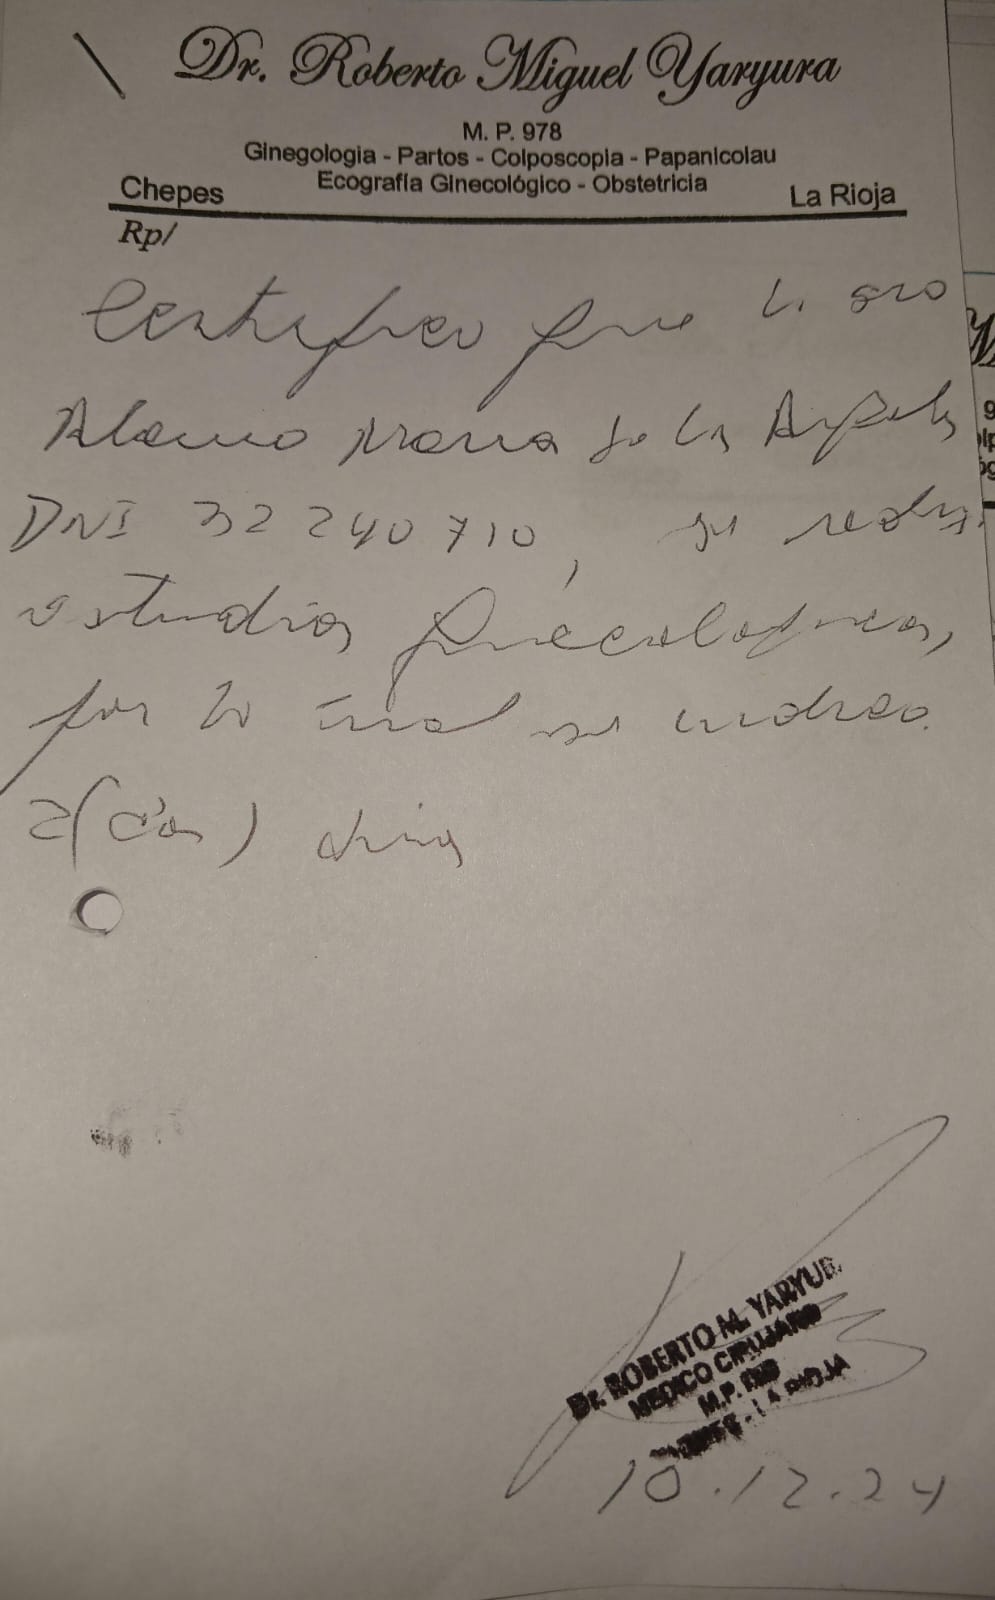 Dr. Roberto Miguel Yaryura
M. P. 978
Ginegologia - Partos - Colposcopia - Papanicolau
Ecografía Ginecológico - Obstetricia
Chepes
La Rioja
Rp/
Certifico que la sra
Alamo Maria de los Angeles
DNI 32 240 710, se realiza
estudios ginecologicos,
por lo cual se indica
2 (dos) dias
Dr. ROBERTO M. YARYUR
MEDICO CIRUJANO
M.P.
- LA RIOJA
10.12.24